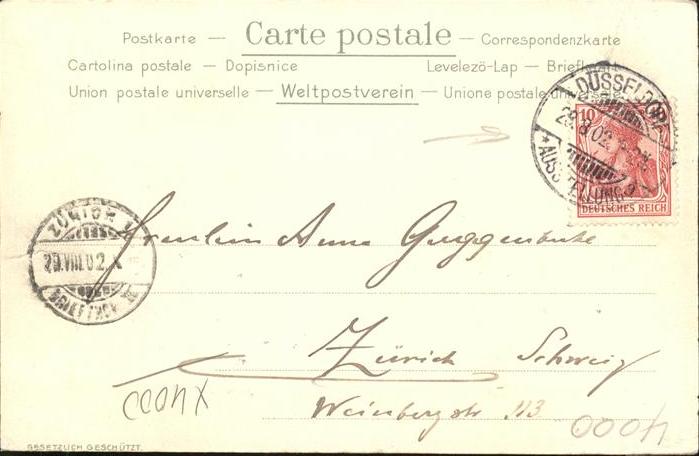 Postkarte — Carte postale — Correspondenzkarte
Cartolina postale — Dopisnice Levelezö-Lap — Briefkaart
Union postale universelle — Weltpostverein — Unione postale universale
DÜSSELDORF
28.8.02.
*AUSSTELLUNG*
10
DEUTSCHES REICH
ZÜRICH
29.VIII.02.
Fräulein Anna Guggenbühl
Zürich Schweiz
Weinbergstr 113
0004
GESETZLICH GESCHÜTZT.